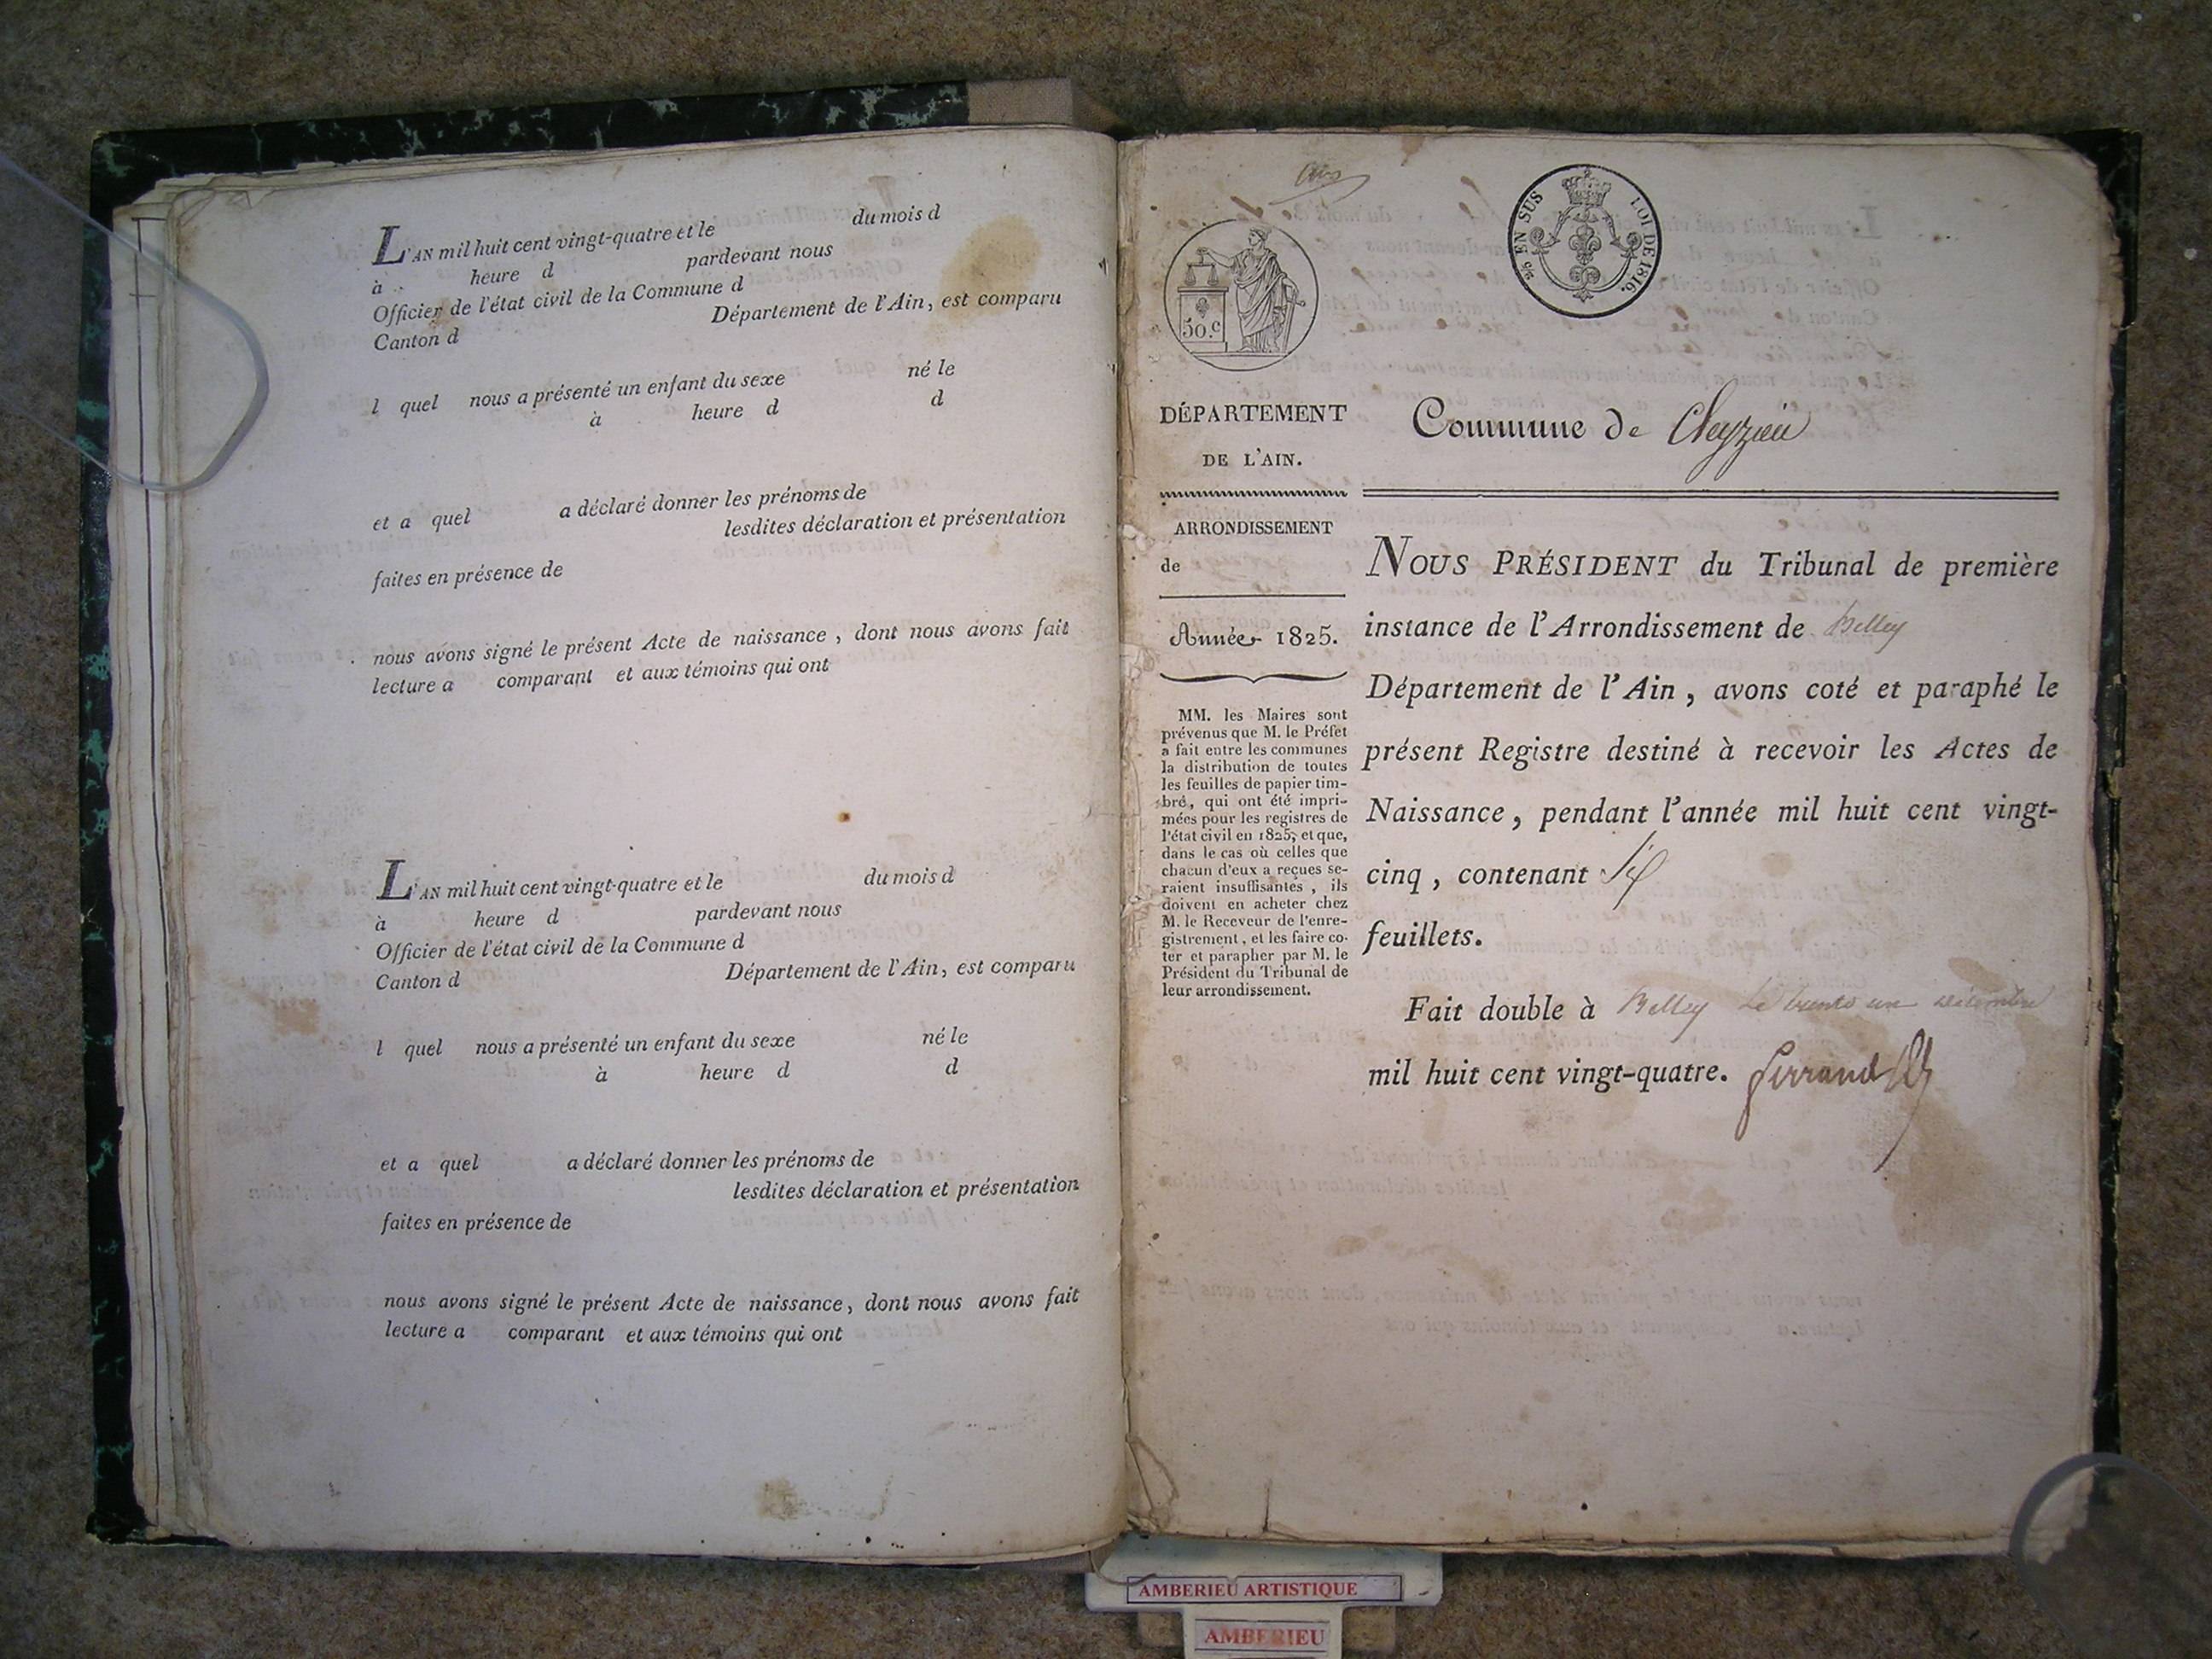 L'AN mil huit cent vingt-quatre et le du mois d
à heure d pardevant nous
Officier de l'état civil de la Commune d
Canton d Département de l'Ain, est comparu
l quel nous a présenté un enfant du sexe né le
à heure d d
et a quel a déclaré donner les prénoms de
lesdites déclaration et présentation
faites en présence de
nous avons signé le présent Acte de naissance, dont nous avons fait
lecture a comparant et aux témoins qui ont
L'AN mil huit cent vingt-quatre et le du mois d
à heure d pardevant nous
Officier de l'état civil de la Commune d
Canton d Département de l'Ain, est comparu
l quel nous a présenté un enfant du sexe né le
à heure d d
et a quel a déclaré donner les prénoms de
lesdites déclaration et présentation
faites en présence de
nous avons signé le présent Acte de naissance, dont nous avons fait
lecture a comparant et aux témoins qui ont
50.c
EN SUS LOI DE 1816.
DÉPARTEMENT
DE L'AIN.
ARRONDISSEMENT
de
Année 1825.
MM. les Maires sont
prévenus que M. le Préfet
a fait entre les communes
la distribution de toutes
les feuilles de papier tim-
bré, qui ont été impri-
mées pour les registres de
l'état civil en 1825; et que,
dans le cas où celles que
chacun d'eux a reçues se-
raient insuffisantes, ils
doivent en acheter chez
M. le Receveur de l'enre-
gistrement, et les faire co-
ter et parapher par M. le
Président du Tribunal de
leur arrondissement.
Commune de Cleyzieu
NOUS PRÉSIDENT du Tribunal de première
instance de l'Arrondissement de Belley
Département de l'Ain, avons coté et paraphé le
présent Registre destiné à recevoir les Actes de
Naissance, pendant l'année mil huit cent vingt-
cinq, contenant Six
feuillets.
Fait double à Belley le trente un décembre
mil huit cent vingt-quatre. Perrand
AMBERIEU ARTISTIQUE
AMBERIEU